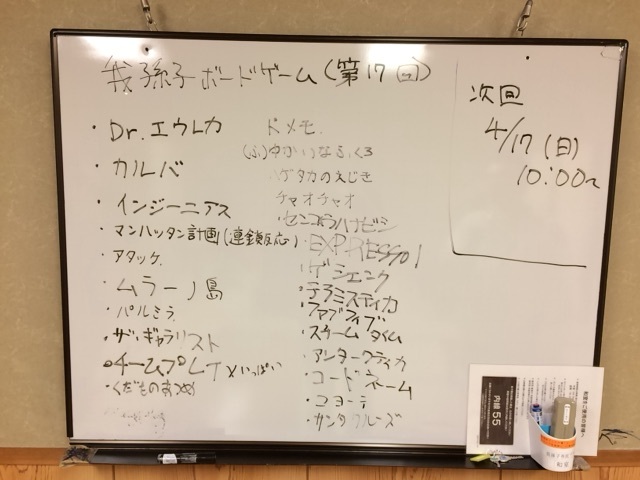 我孫子ボードゲーム(第17回)
・Dr.エウレカ
・カルバ
・インジーニアス
・マンハッタン計画(連鎖反応)
・アタック
・ムラーノ島
・パルミラ
・ザ・ギャラリスト
・チームプレTメいっぱい
・くだものあつめ
ドメモ.
(ふ)ゆかいなふくろ
ハゲタカのえじき
チャオチャオ
・センゴクハナビシ
・EXPRESSO1
・ゲシェンク
・テラミスティカ
・ファブライブ
・スチームタイム
・アンタークティカ
・コードネーム
・コヨーテ
・サンタクルーズ
次回
4/17(日)
10:00〜
内線55